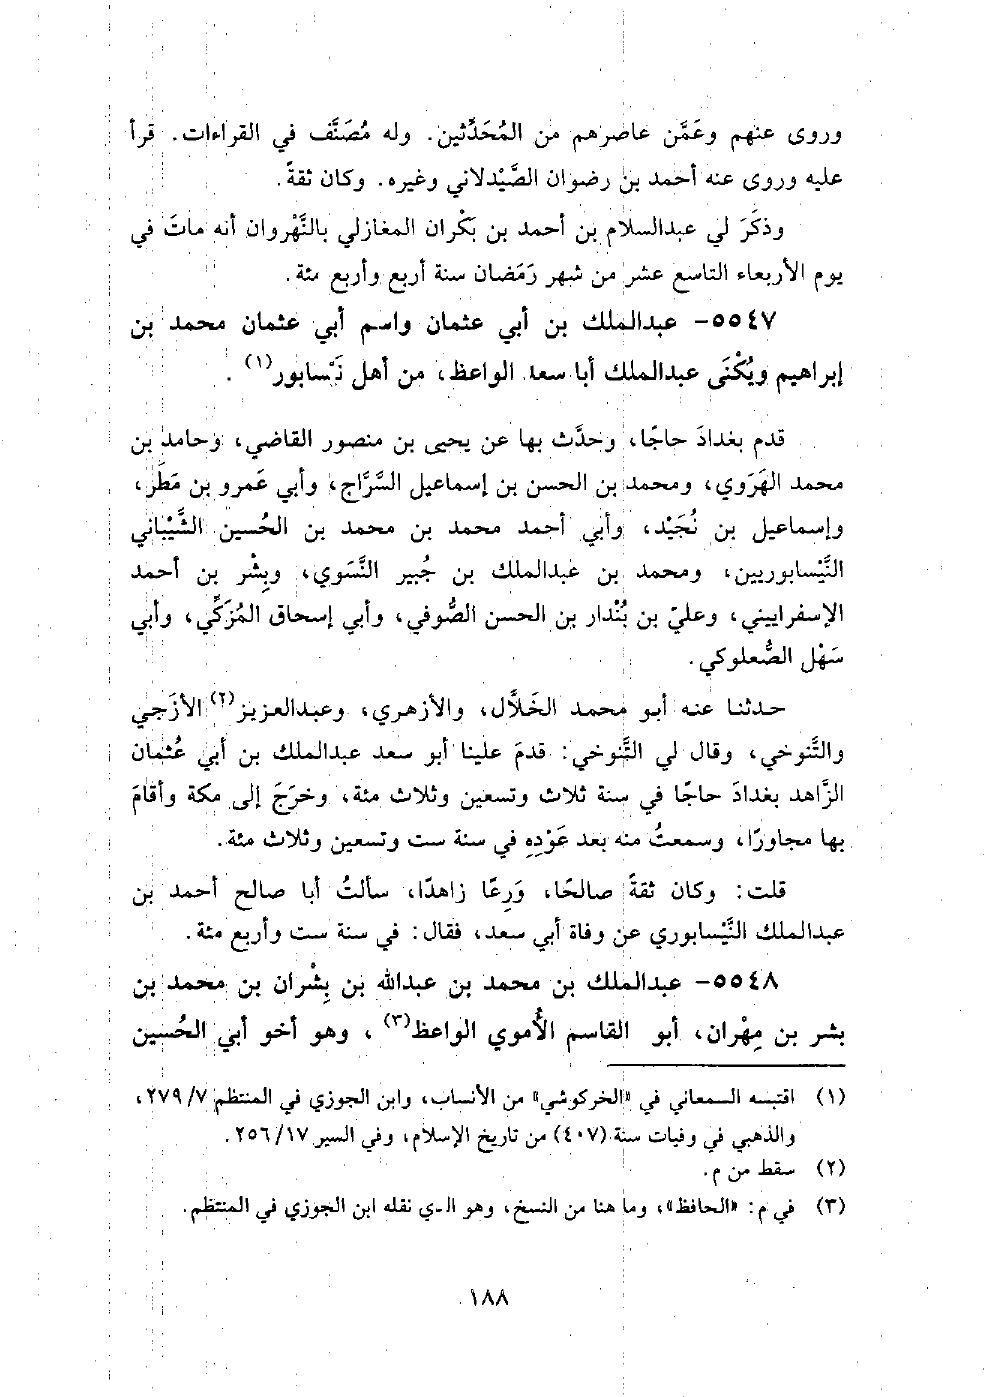 وروى عنهم وعَمَّن عاصرهم من المُحَدَّثين. وله مُصَنَّف في القراءات. قرأ
عليه وروى عنه أحمد بن رضوان الصَّيْدلاني وغيره. وكان ثقةً.
وذكَرَ لي عبدالسلام بن أحمد بن بَكْران المغازلي بالنَّهْروان أنه ماتَ في
يوم الأربعاء التاسع عشر من شهر رَمَضان سنة أربع وأربع مئة.
٥٥٤٧- عبدالملك بن أبي عثمان واسم أبي عثمان محمد بن
إبراهيم ويُكْنَى عبدالملك أبا سعد الواعظ، من أهل نَيْسابور(١) .
قدم بغدادَ حاجًا، وحدَّث بها عن يحيى بن منصور القاضي، وحامد بن
محمد الهَرَوي، ومحمد بن الحسن بن إسماعيل السَّرَّاج، وأبي عَمرو بن مَطَر،
وإسماعيل بن نُجَيْد، وأبي أحمد محمد بن محمد بن الحُسين الشَّيْباني
النَّيْسابوريين، ومحمد بن عبدالملك بن جُبير النَّسَوي، وبِشْر بن أحمد
الإسفراييني، وعليّ بن بُنْدار بن الحسن الصُّوفي، وأبي إسحاق المُزَكِّي، وأبي
سَهْل الصُّعلوكي.
حدثنا عنه أبو محمد الخَلاَّل، والأزهري، وعبدالعزيز(٢) الأزَجي
والتَّنوخي، وقال لي التَّنوخي: قدمَ علينا أبو سعد عبدالملك بن أبي عُثمان
الزَّاهد بغدادَ حاجًا في سنة ثلاث وتسعين وثلاث مئة، وخرَجَ إلى مكة وأقامَ
بها مجاورًا، وسمعتُ منه بعد عَوْدِهِ في سنة ست وتسعين وثلاث مئة.
قلت: وكان ثقةً صالحًا، وَرِعًا زاهدًا، سألتُ أبا صالح أحمد بن
عبدالملك النَّيْسابوري عن وفاة أبي سعد، فقال: في سنة ست وأربع مئة.
٥٥٤٨- عبدالملك بن محمد بن عبدالله بن بِشْران بن محمد بن
بشر بن مِهْران، أبو القاسم الأُموي الواعظ(٣) ، وهو أخو أبي الحُسين
(١) اقتبسه السمعاني في «الخركوشي» من الأنساب، وابن الجوزي في المنتظم ٧/ ٢٧٩،
والذهبي في وفيات سنة (٤٠٧) من تاريخ الإسلام، وفي السير ١٧/ ٢٥٦.
(٢) سقط من م.
(٣) في م: «الحافظ»، وما هنا من النسخ، وهو الذي نقله ابن الجوزي في المنتظم.
١٨٨